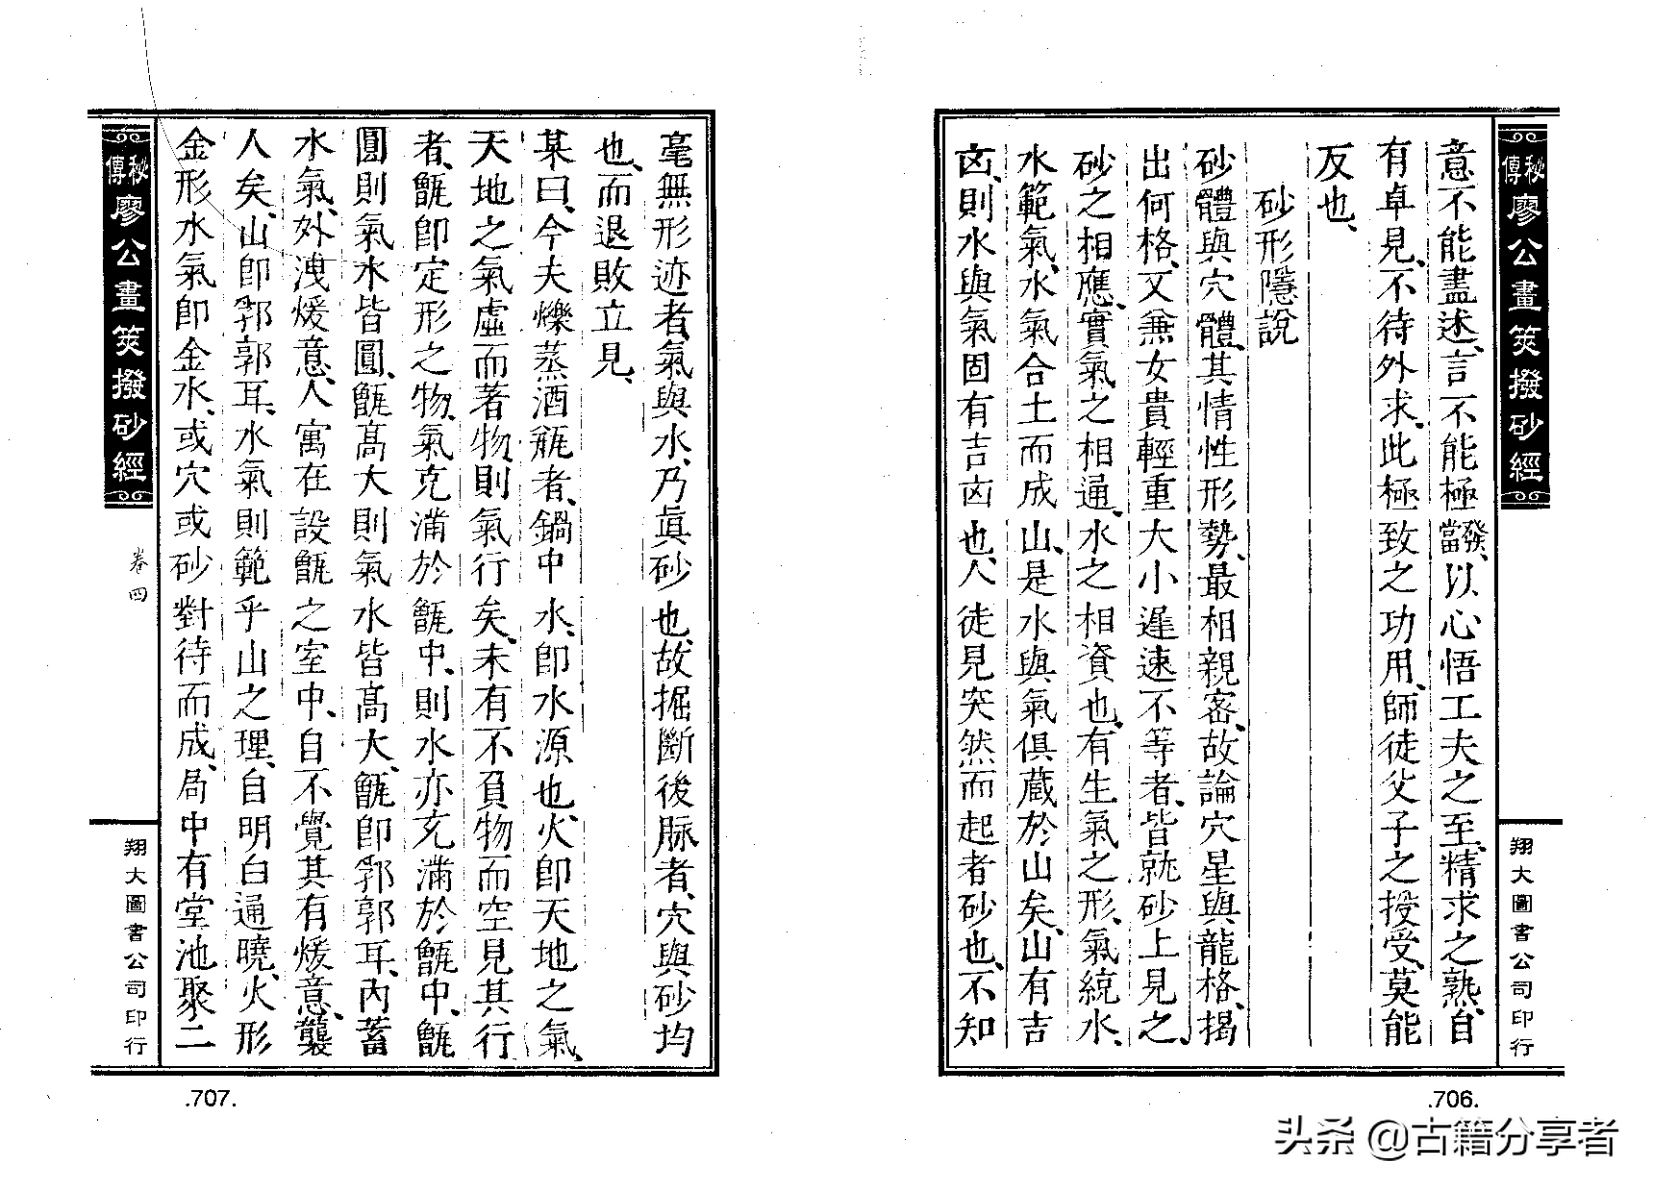 秘傳廖公畫筴撥砂經
翔大圖書公司印行
意不能盡述、言不能極當發、以心悟工夫之至、精求之熟、自
有卓見、不待外求、此極致之功用、師徒父子之授受、莫能
反也、
砂形隱說
砂體與穴體、其情性形勢、最相親密、故論穴星與龍格、揭
出何格、又兼女貴輕重大小遲速不等者、皆就砂上見之、
砂之相應、實氣之相通、水之相資也、有生氣之形、氣統水、
水範氣、水氣合土而成山、是水與氣俱藏於山矣、山有吉
凶、則水與氣固有吉凶也、人徒見突然而起者砂也、不知
.706.
毫無形迹者、氣與水、乃眞砂也、故掘斷後脉者、穴與砂均
也、而退敗立見、
某曰、今夫爍蒸酒甁者、鍋中水、卽水源也、火卽天地之氣、
天地之氣虛而著物、則氣行矣、未有不負物而空見其行
者、甑卽定形之物、氣充滿於甑中、則水亦充滿於甑中、甑
圓則氣水皆圓、甑高大則氣水皆高大、甑卽郛郭耳、內蓄
水氣、外洩煖意、人寓在設甑之室中、自不覺其有煖意、襲
人矣、山卽郛郭耳、水氣則範乎山之理、自明白通曉、火形
金形水氣卽金水、或穴或砂對待而成、局中有堂池聚二
秘傳廖公畫筴撥砂經
卷四
翔大圖書公司印行
.707.
头条 @古籍分享者